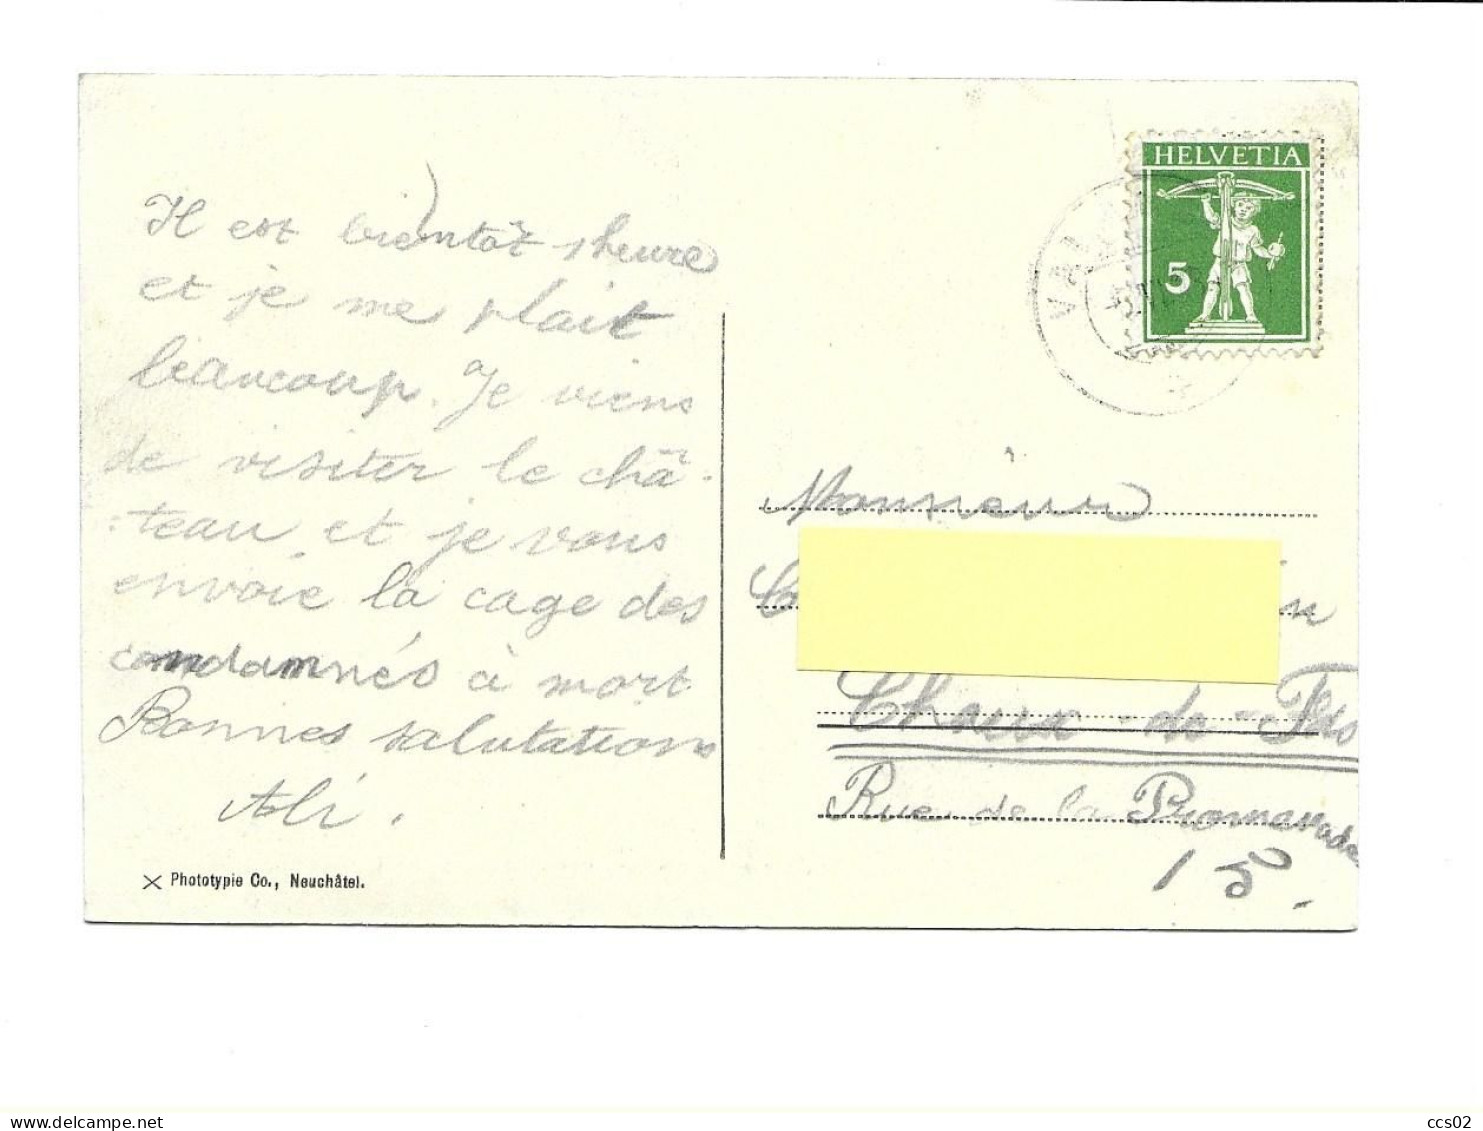 Il est bientôt 1 heure
et je me plait
beaucoup. Je viens
de visiter le châ-
teau et je vous
envoie la cage des
condamnés à mort
Bonnes salutations
Ali.
X Phototypie Co., Neuchâtel.
HELVETIA
5
VAL
Monsieur
C
in
Chaux-de-Fds
Rue de la Promenade
15.
ccs02